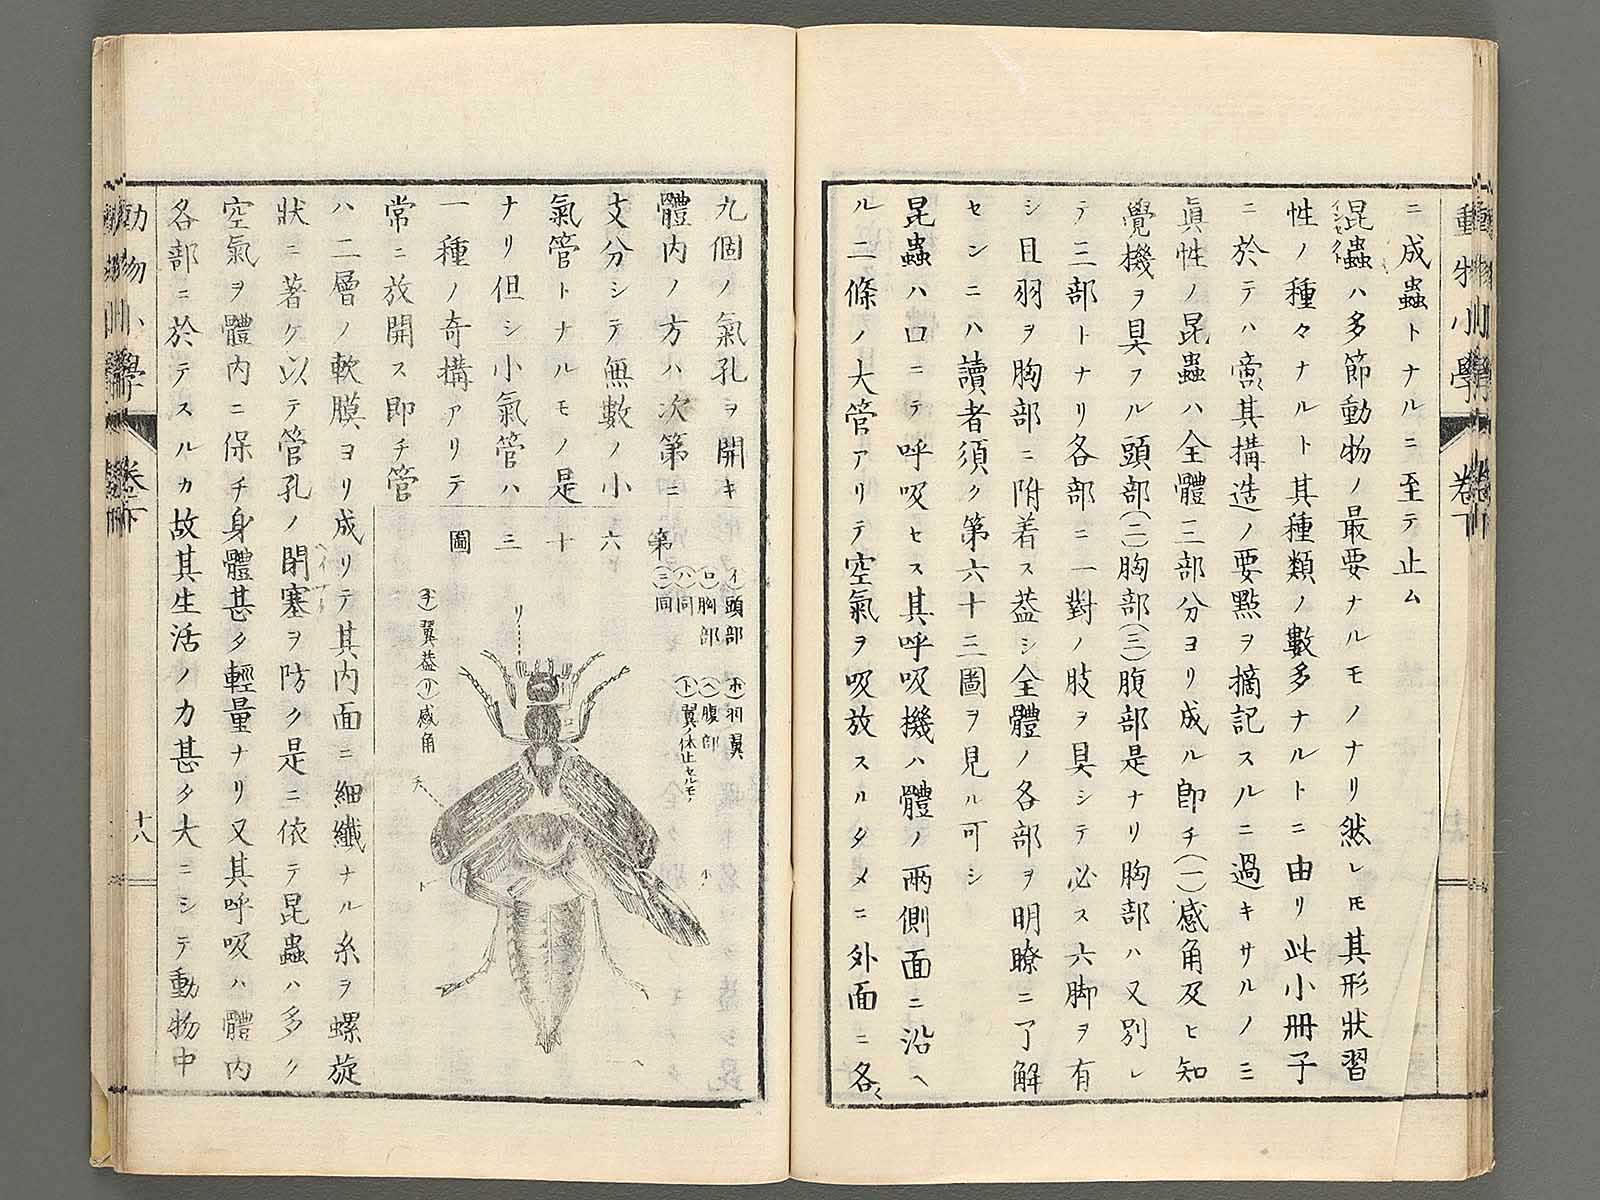 動物小學 卷下
ニ成蟲トナルニ至テ止ム
昆蟲ハ多節動物ノ最要ナルモノナリ然レモ其形狀習
インセクト
性ノ種々ナルト其種類ノ數多ナルトニ由リ此小冊子
ニ於テハ啻其搆造ノ要點ヲ摘記スルニ過キサルノミ
眞性ノ昆蟲ハ全體三部分ヨリ成ル卽チ(一)感角及ヒ知
覺機ヲ具フル頭部(二)胸部(三)腹部是ナリ胸部ハ又別レ
テ三部トナリ各部ニ一對ノ肢ヲ具シテ必ス六脚ヲ有
シ且羽ヲ胸部ニ附着ス葢シ全體ノ各部ヲ明瞭ニ了解
センニハ讀者須ク第六十三圖ヲ見ル可シ
昆蟲ハ口ニテ呼吸セス其呼吸機ハ體ノ兩側面ニ沿ヘ
ル二條ノ大管アリテ空氣ヲ吸放スルタメニ外面ニ各〻
九個ノ氣孔ヲ開キ
體內ノ方ハ次第ニ
支分シテ無數ノ小
氣管トナルモノ是
ナリ但シ小氣管ハ
一種ノ奇搆アリテ
常ニ放開ス卽チ管
第六十三圖
(イ)頭部
(ロ)胸部
(ハ)同
(ニ)同
(ホ)羽翼
(ヘ)腹部
(ト)翼ノ休止セルモノ
(チ)翼葢(リ)感角
リ
チ
ト
ホ
ヘ
ハ二層ノ軟膜ヨリ成リテ其內面ニ細纖ナル糸ヲ螺旋
狀ニ著ケ以テ管孔ノ閉塞ヲ防ク是ニ依テ昆蟲ハ多ク
空氣ヲ體內ニ保チ身體甚タ輕量ナリ又其呼吸ハ體內
各部ニ於テスルカ故其生活ノ力甚タ大ニシテ動物中
動物小學 卷下
十八